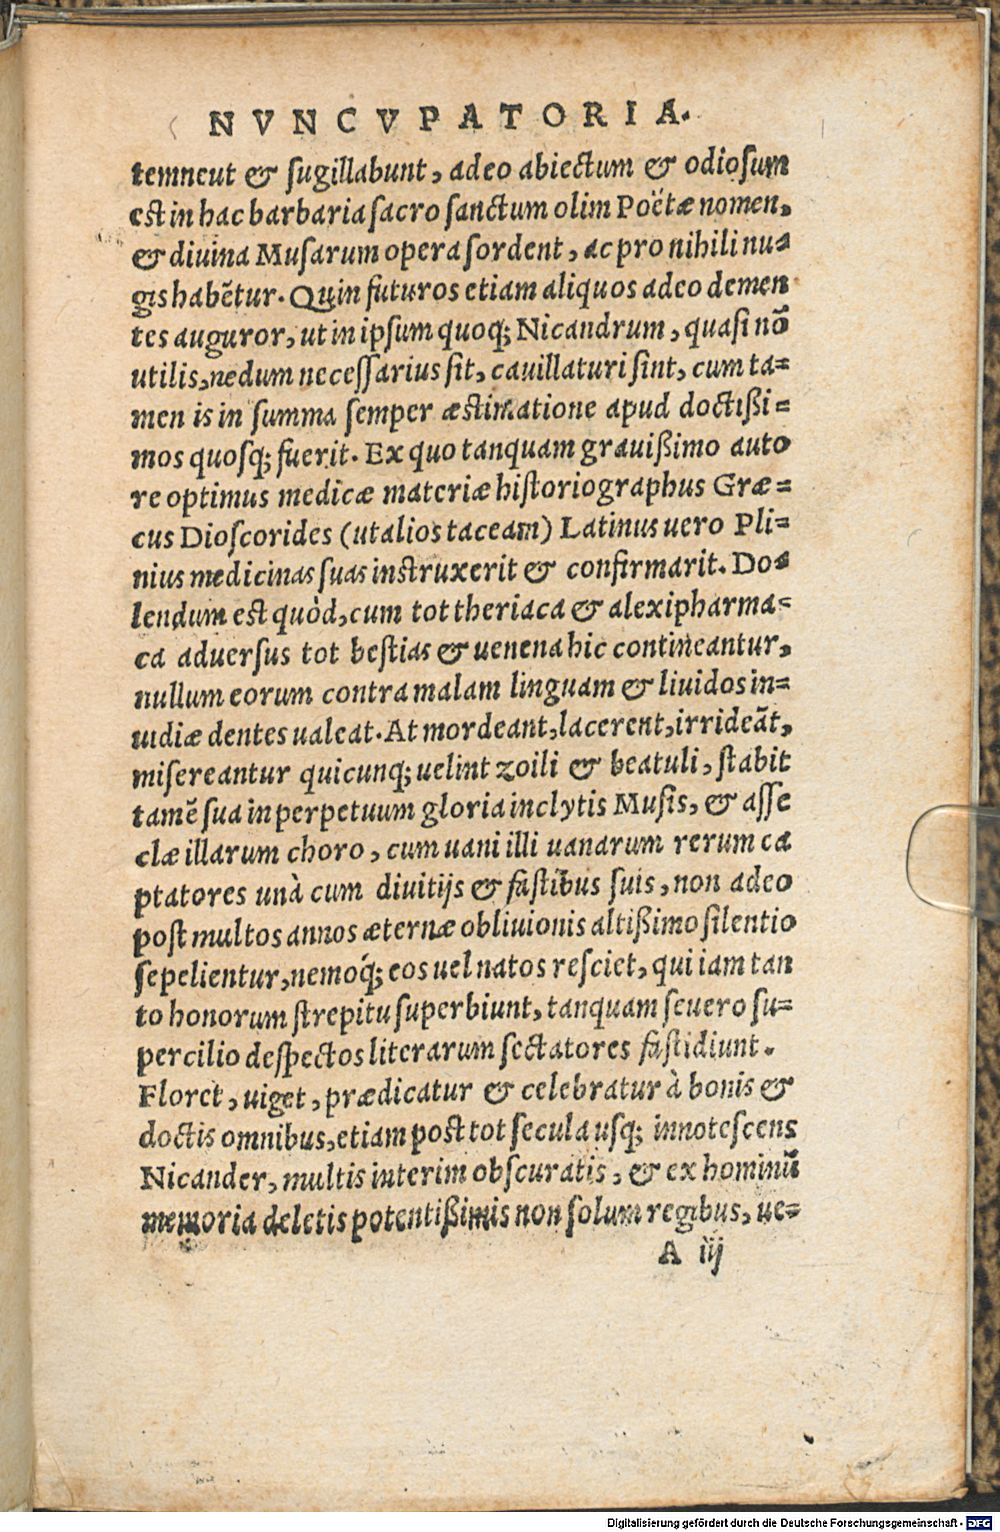 NVNCVPATORIA.
temneut & sugillabunt, adeo abiectum & odiosum
est in hac barbaria sacro sanctum olim Poëtæ nomen,
& diuina Musarum opera sordent, ac pro nihili nu=
gis habẽtur. Quin futuros etiam aliquos adeo demen
tes auguror, ut in ipsum quoq; Nicandrum, quasi nõ
utilis, nedum necessarius sit, cauillaturi sint, cum ta=
men is in summa semper æstimatione apud doctißi=
mos quosq; fuerit. Ex quo tanquam grauißimo auto
re optimus medicæ materiæ historiographus Græ=
cus Dioscorides (ut alios taceam) Latinus uero Pli=
nius medicinas suas instruxerit & confirmarit. Do=
lendum est quòd, cum tot theriaca & alexipharma=
ca aduersus tot bestias & uenena hic contineantur,
nullum eorum contra malam linguam & liuidos in=
uidiæ dentes ualeat. At mordeant, lacerent, irrideãt,
misereantur quicunq; uelint zoili & beatuli, stabit
tamẽ sua in perpetuum gloria inclytis Musis, & asse
clæ illarum choro, cum uani illi uanarum rerum ca
ptatores unà cum diuitijs & fastibus suis, non adeo
post multos annos æternæ obliuionis altißimo silentio
sepelientur, nemoq́; eos uel natos resciet, qui iam tan
to honorum strepitu superbiunt, tanquam seuero su=
percilio despectos literarum sectatores fastidiunt.
Floret, uiget, prædicatur & celebratur à bonis &
doctis omnibus, etiam post tot secula usq; innotescens
Nicander, multis interim obscuratis, & ex hominũ
memoria deletis potentißimis non solum regibus, ue=
A iij
Digitalisierung gefördert durch die Deutsche Forschungsgemeinschaft - DFG